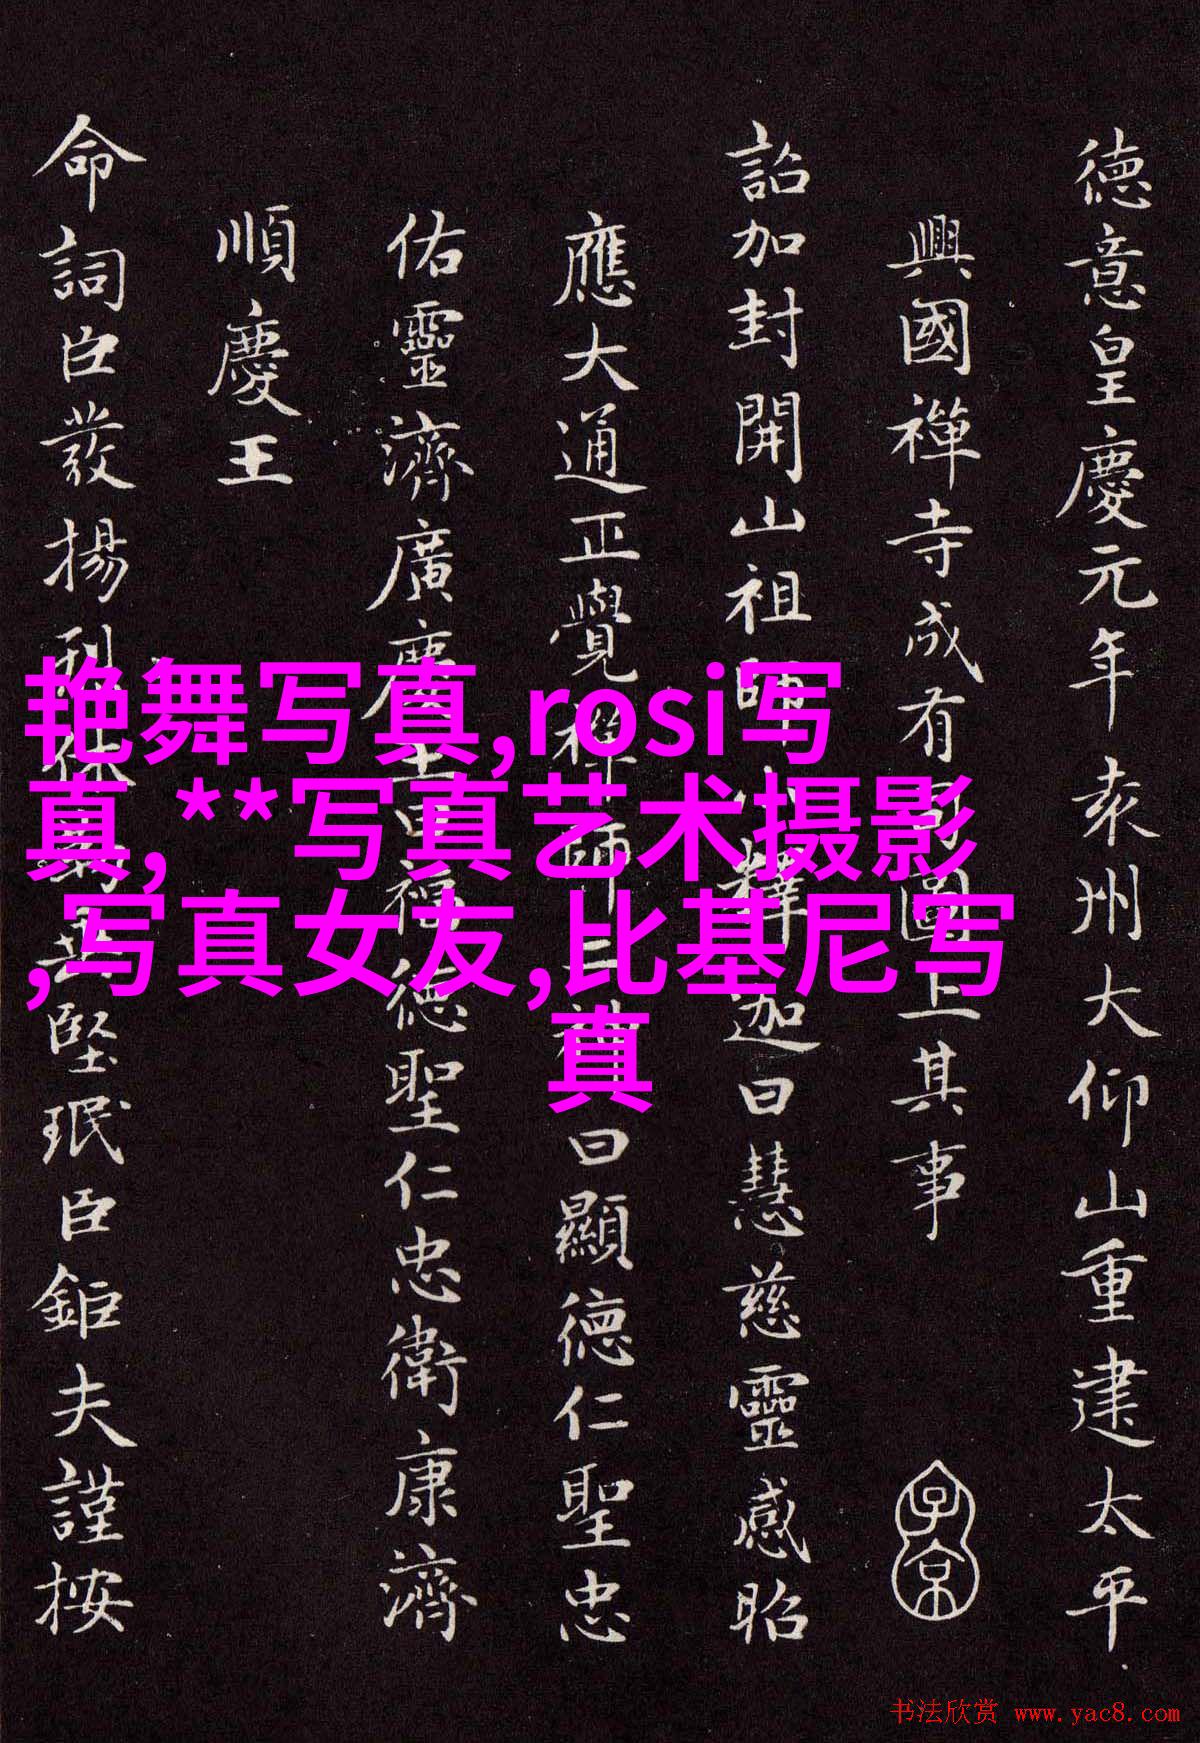 德意皇慶元年袁州大仰山重建太平
興國禪寺成有司圖上其事
子京
詔加封開山祖師小釋迦曰慧慈靈感昭
應大通正覺禪師二神曰顯德仁聖忠
佑靈濟廣慶王曰福德聖仁忠衛康濟
順慶王
命詞臣發揚休堅珉臣鉅夫謹按
艳舞写真,rosi写
真,**写真艺术摄影
,写真女友,比基尼写
真
书法欣赏 www.yac8.com